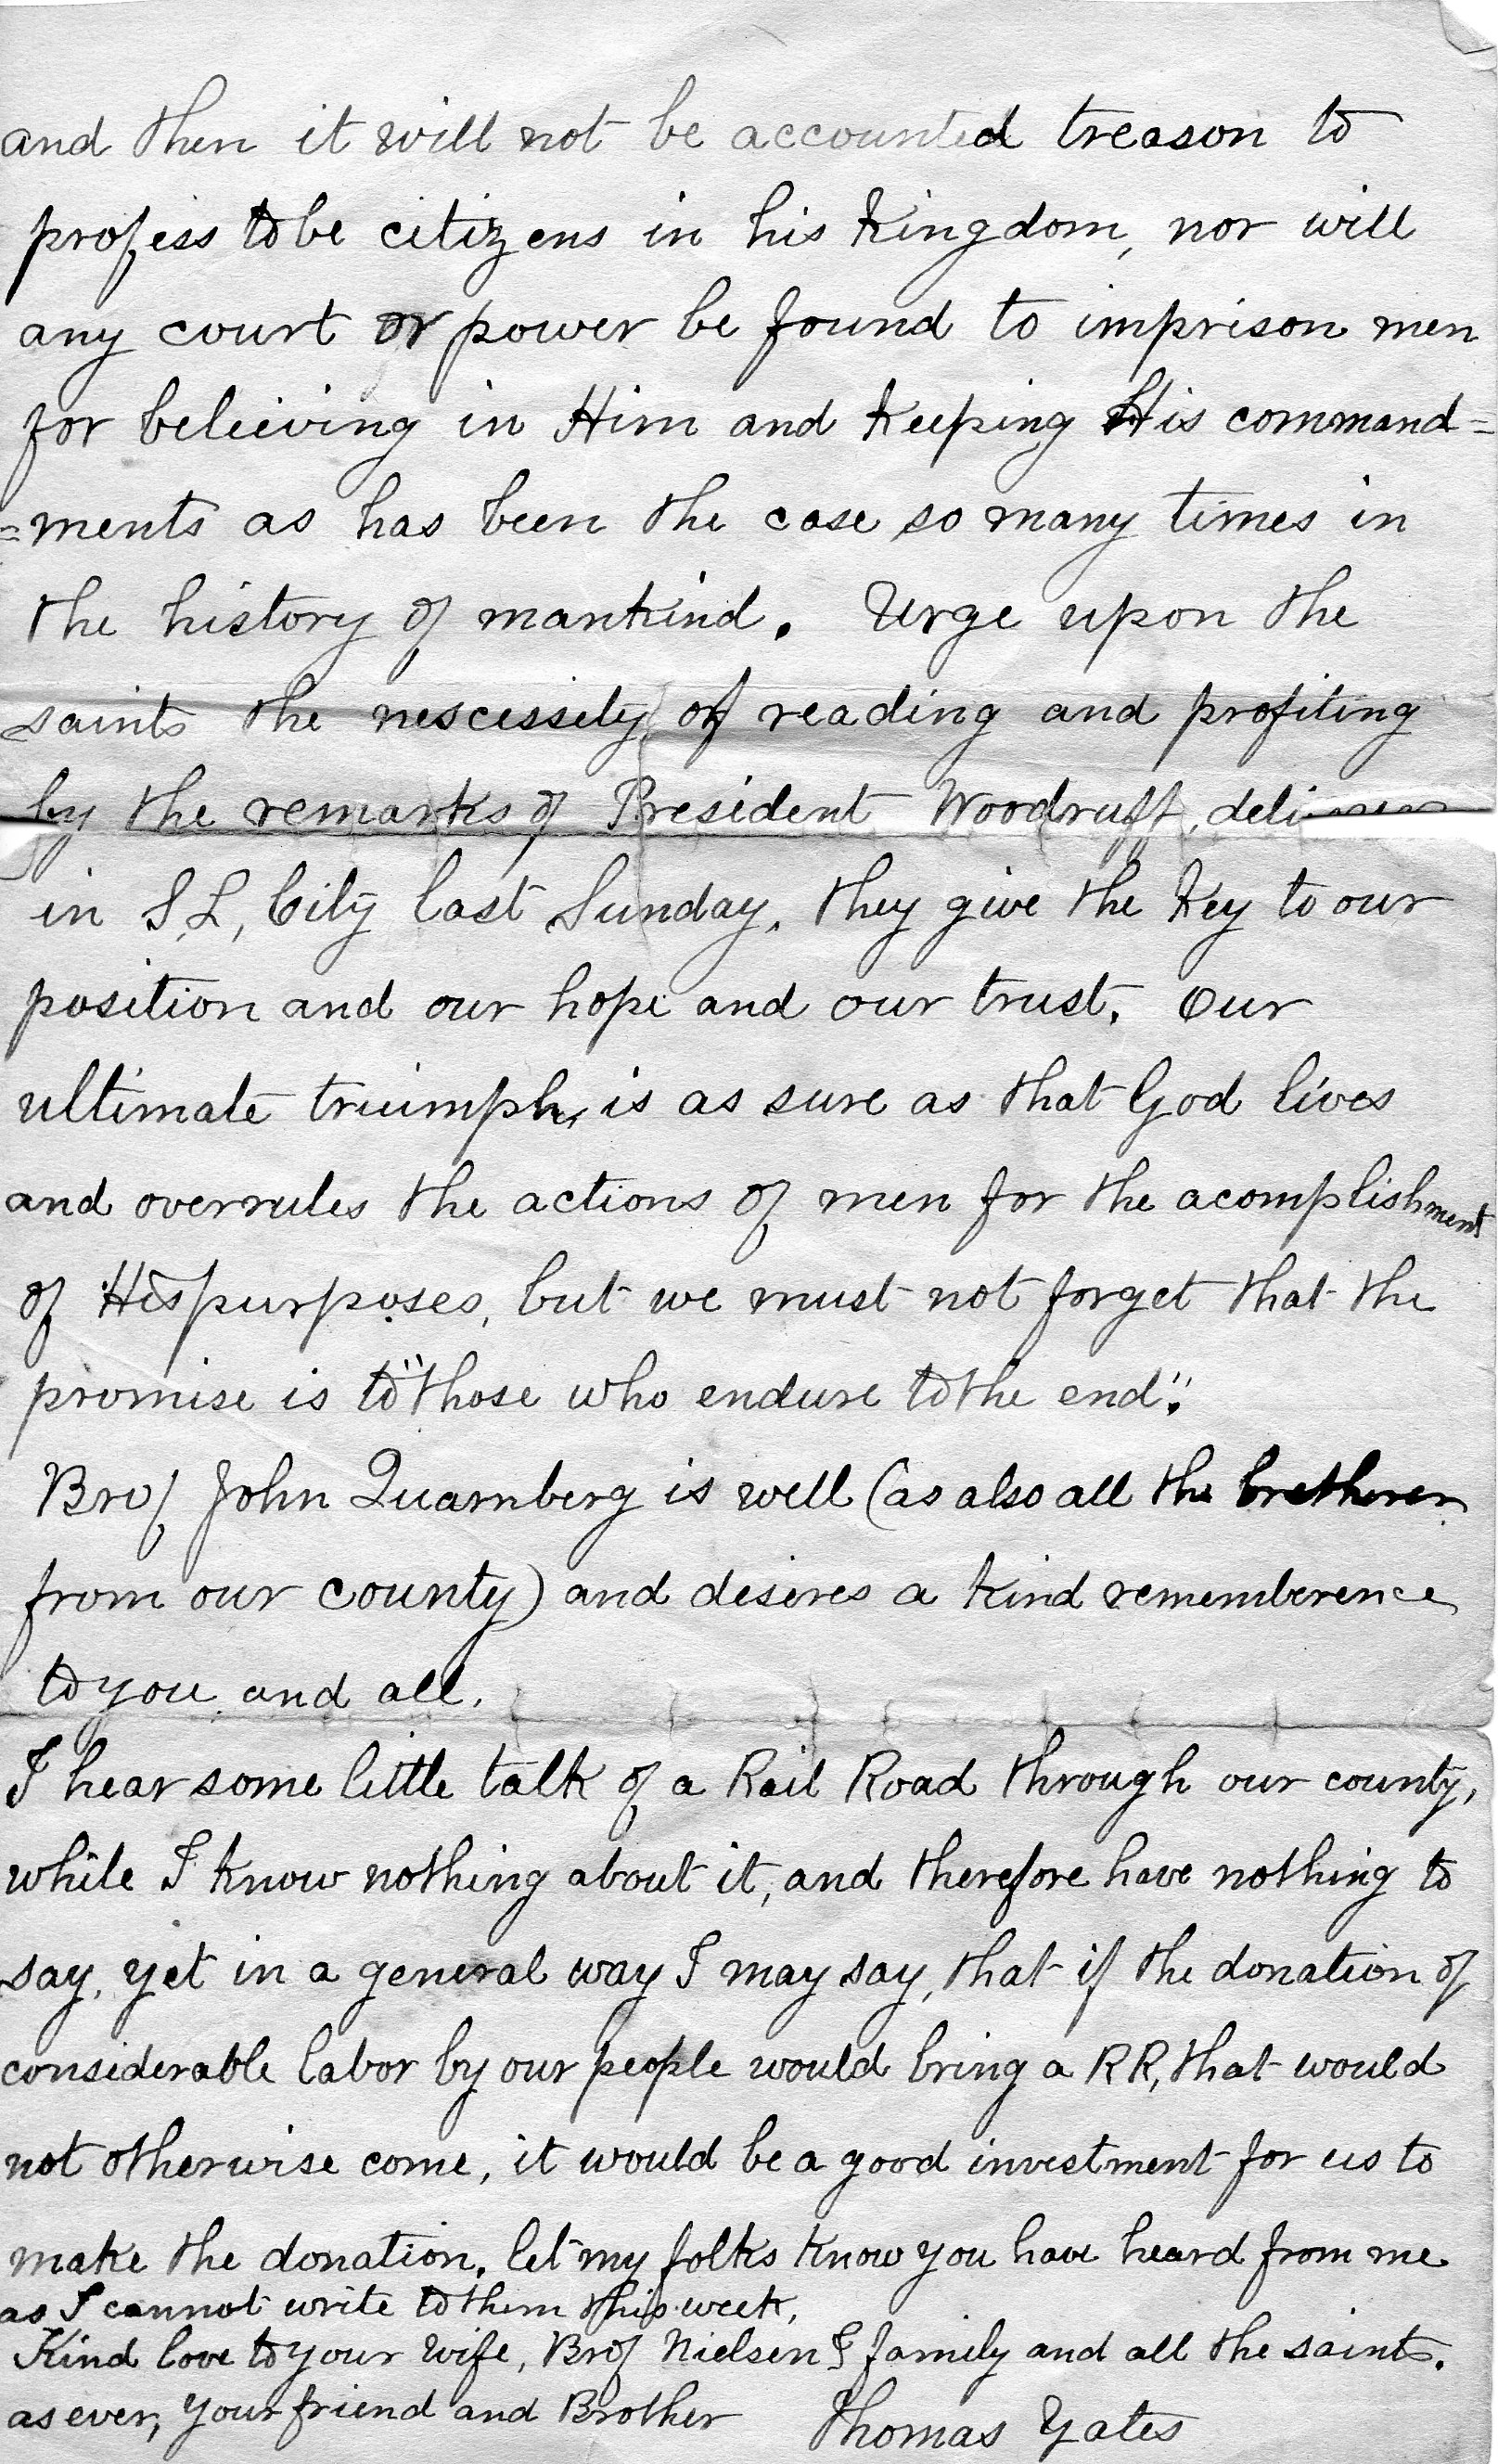 and then it will not be accounted treason to
profess to be citizens in his Kingdom, nor will
any court or power be found to imprison men
for believing in Him and Keeping His command=
=ments as has been the case so many times in
the history of mankind. Urge upon the
saints the nescessity of reading and profiting
by the remarks of President Woodruff,
in S,L, City last Sunday. they give the Key to our
position and our hope and our trust. Our
ultimate triumph, is as sure as that God lives
and overrules the actions of men for the acomplishment
of His purposes, but we must not forget that the
promise is to "those who endure to the end".
Bro/ John Quarnberg is well (as also all the bretheren
from our county) and desires a kind rememberence
to you and all.
I hear some little talk of a Rail Road through our county,
while I know nothing about it, and therefore have nothing to
say, yet in a general way I may say, that if the donation of
considerable labor by our people would bring a RR, that would
not otherwise come, it would be a good investment for us to
make the donation. let my folks know you have heard from me
as I cannot write to them this week.
Kind love to your wife, Bro/ Nielsen & family and all the saints.
as ever, your friend and Brother Thomas Yates